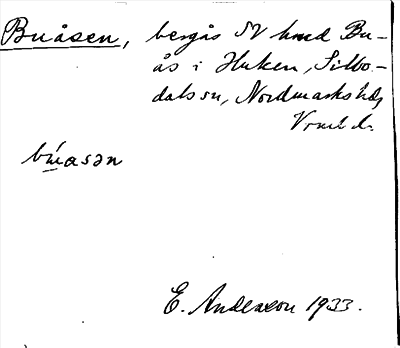 Buåsen, bergås SV hmd Bu-
ås i Huken, Silbo-
dals sn, Nordmarks hd,
Vrml d.
búasən
E. Andersson 1933.